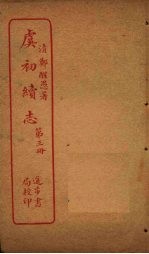 清鄭醒愚著
虞初續志
第三冊
進步書
局校印